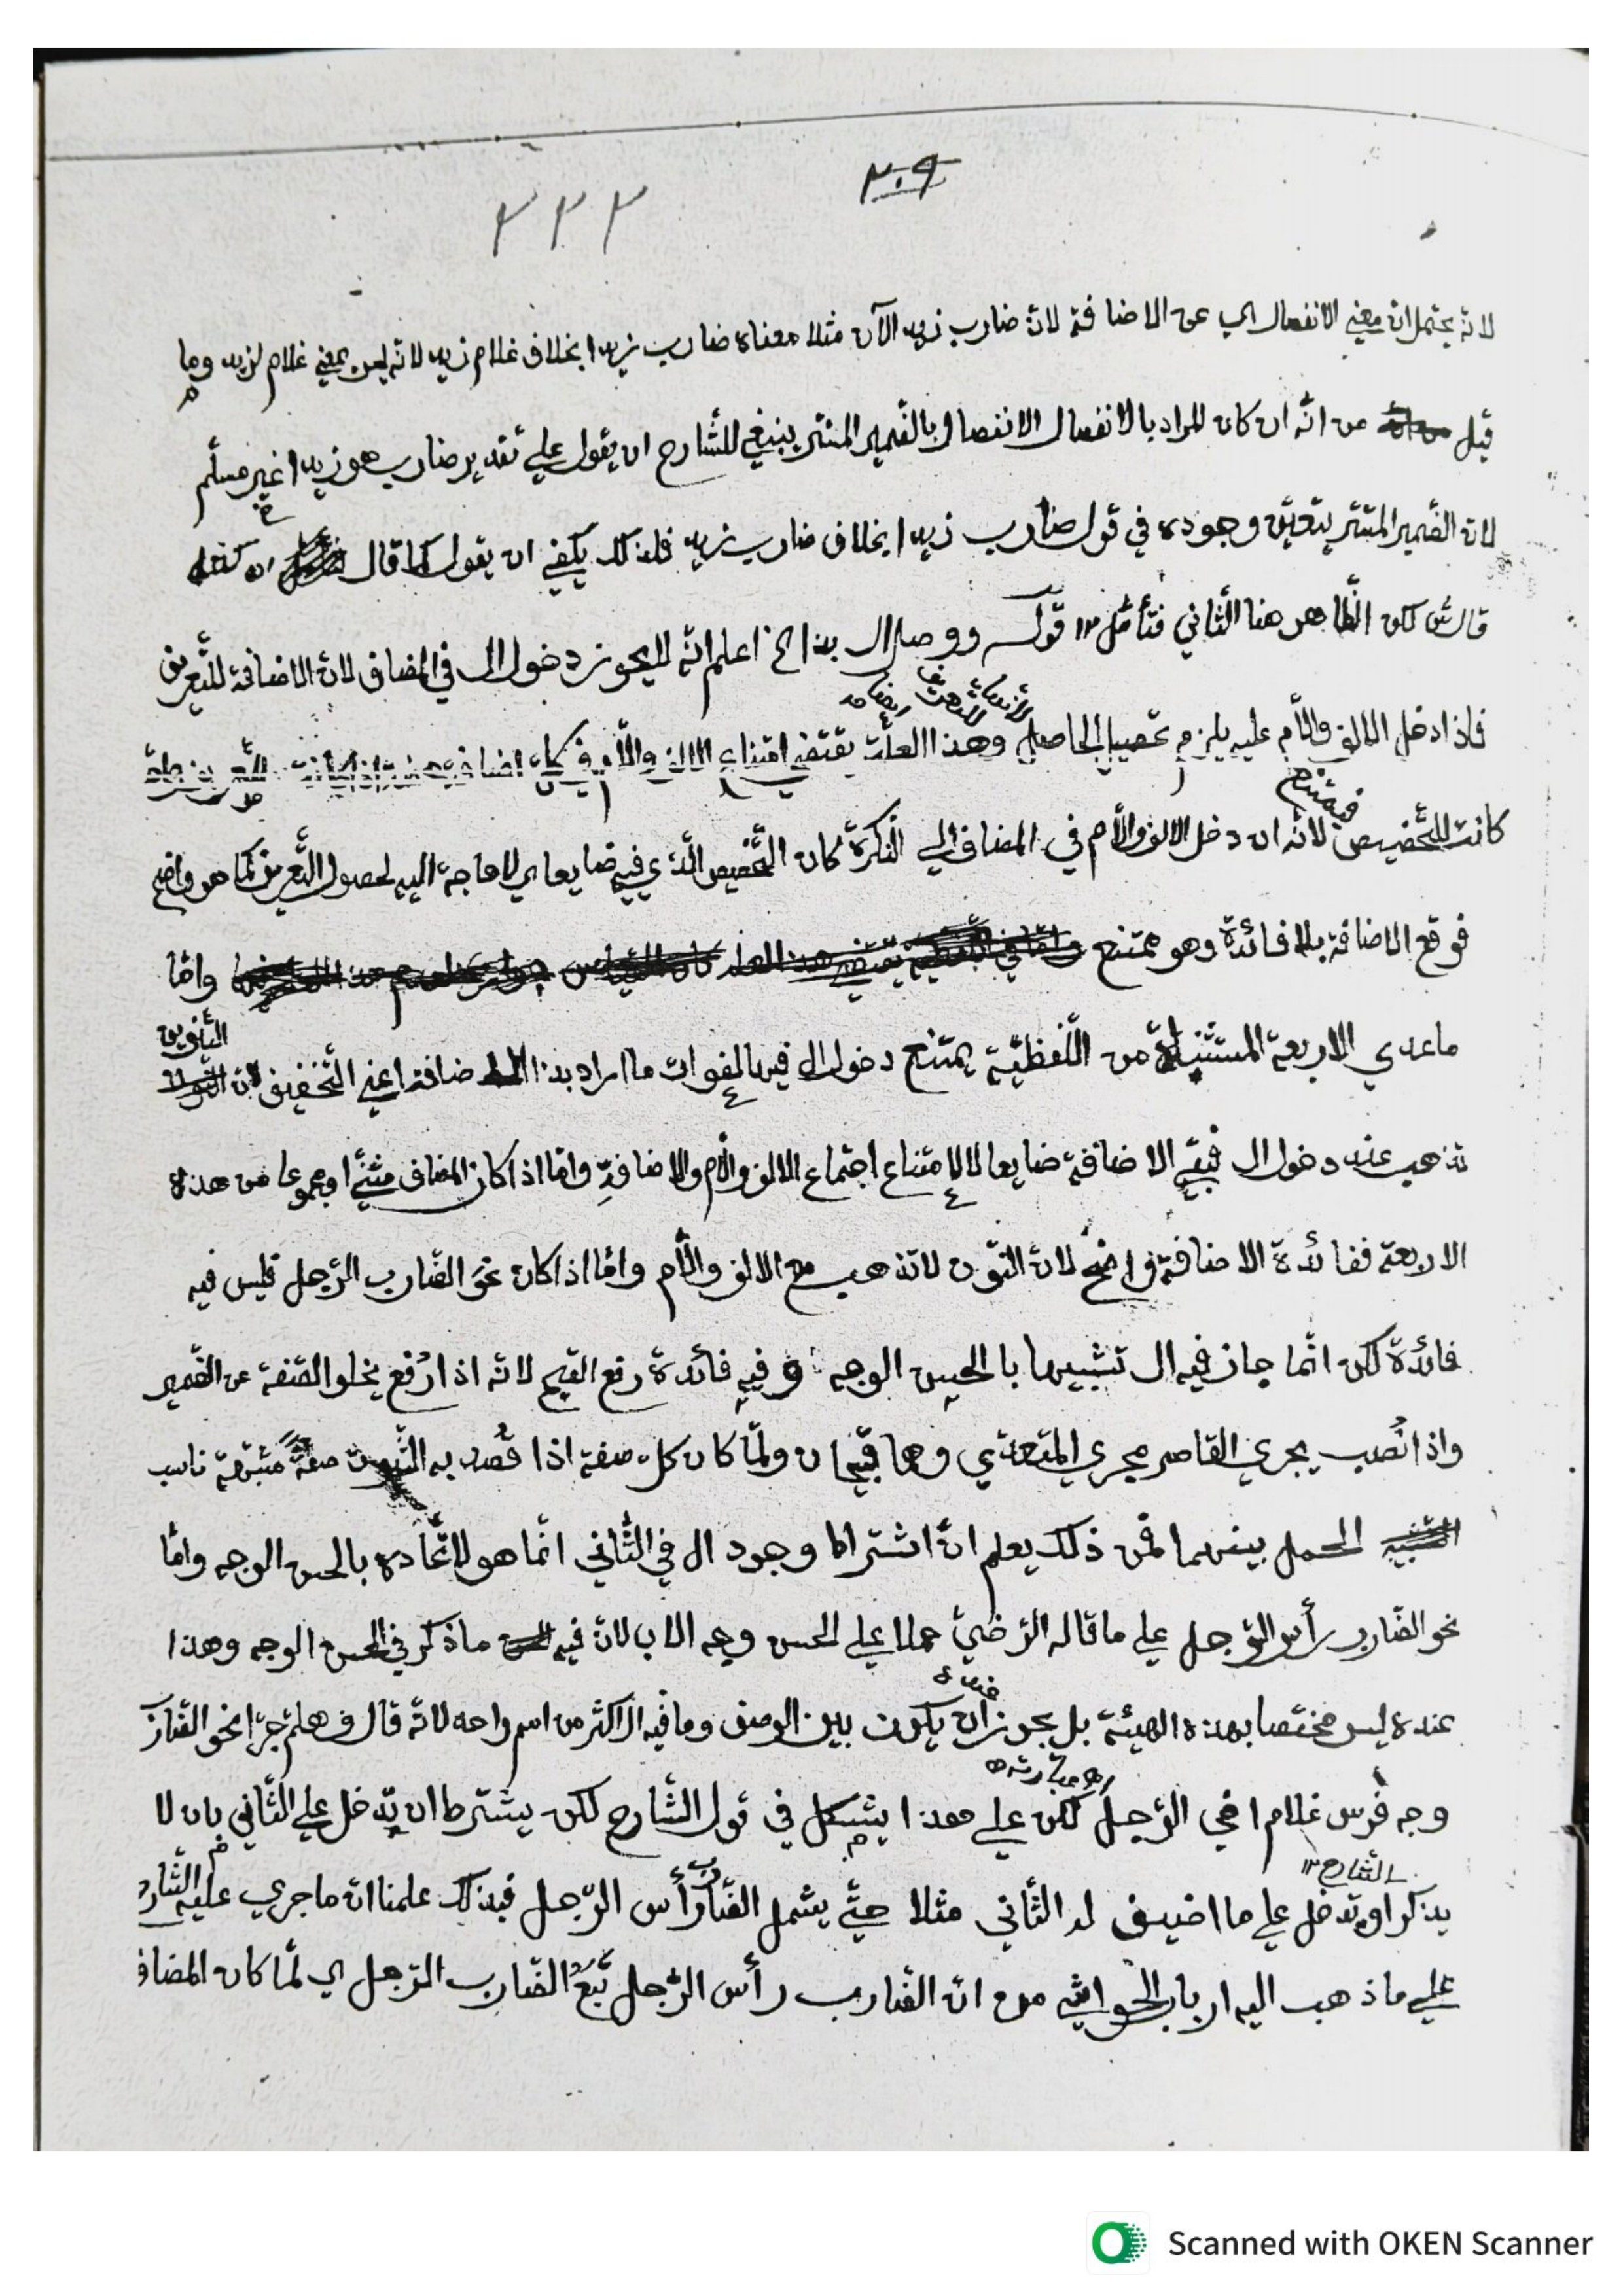 ٣٠٩
٣٣٣
لانه يحتملان معنى الانفصال اي عن الاضافة لان ضارب زيد الآن مثلا معناه ضارب زيدا بخلاف غلام زيد لانه ليس بمعنى غلام لزيد وما
قيل من انّه ان كان المراد بالانفصال الانفصال بالضّمير المستتر ينبغي للشّارح ان يقول على تقدير ضارب هو زيدا غير مسلّم
لان الضّمير المستتر يتعيّن وجوده في قول ضارب زيدا بخلاف ضارب زيد فلذلك يكفي ان يقول كما قال
لكن الظّاهر هنا الثّاني فتأمّل ١٢ قوله ووصل ال بذا الخ اعلم انّه لا يجوز دخول ال في المضاف لان الاضافة للتّعريف
فاذا دخل الالف واللّام عليه يلزم تحصيل الحاصل وهذا العلّة يقتضي امتناع الالف واللّام في كل اضافة
فيمتنع
كانت للتّخصيص لانّه ان دخل الالف واللّام في المضاف الى النّكرة كان التّخصيص الّذي فيه ضايعا اي لا حاجة اليه لحصول التّعريف كما هو واضح
فوقع الاضافة بلا فائدة وهو ممتنع وامّا
ما عدى الاربعة المستثناة من اللّفظيّة يمتنع دخول ال فيها لفوات ما اراد بذا الاضافة اعني التّخفيف لان التّنوين
تذهب عند دخول ال فيبقى الاضافة ضايعا لامتناع اجتماع الالف واللّام والاضافة وامّا اذا كان المضاف مثنّى او مجموعا من هذه
الاربعة ففائدة الاضافة واضح لان النّون لا تذهب مع الالف واللّام وامّا اذا كان نحو الضّارب الرّجل فليس فيه
فائدة لكن انّما جاز فيه ال تشبيها بالحسن الوجه وفيه فائدة رفع القبح لانه اذا رُفع يخلو الصّفة عن الضّمير
واذا نُصب يجري القاصر مجرى المتعدّي وهما قبيحان ولمّا كان كل صفة اذا قُصد به الثّبوت صفةً مشبّهة ناسب
الحمل بينهما فمن ذلك يعلم انّ اشتراط وجود ال في الثّاني انّما هو لاتّحاده بالحسن الوجه وامّا
نحو الضّارب رأس الرّجل على ما قاله الرّضيّ حملا على الحسن وجه الاب لانّ فيه ما ذكر في الحسن الوجه وهذا
عنده ليس مختصا بهذه الهيئة بل يجوز ان يكون بين الوصف وما فيه ال اكثر من اسم واحد لانّه قال وهلمّ جرّا نحو الضّارب
وجه فرس غلام اخي الرّجل لكن على هذا يشكل في قول الشّارح لكن يشترط ان تدخل على الثّاني بان لا
الشارح ١٢
يذكر او تدخل على ما اضيف له الثّاني مثلا حتّى يشمل الضّارب رأس الرّجل فبذلك علمنا انّ ما جرى عليه الشّارح
على ما ذهب اليه ارباب الحواشي من انّ الضّارب رأس الرّجل تَبَعُ الضّارب الرّجل اي لمّا كان المضاف
Scanned with OKEN Scanner